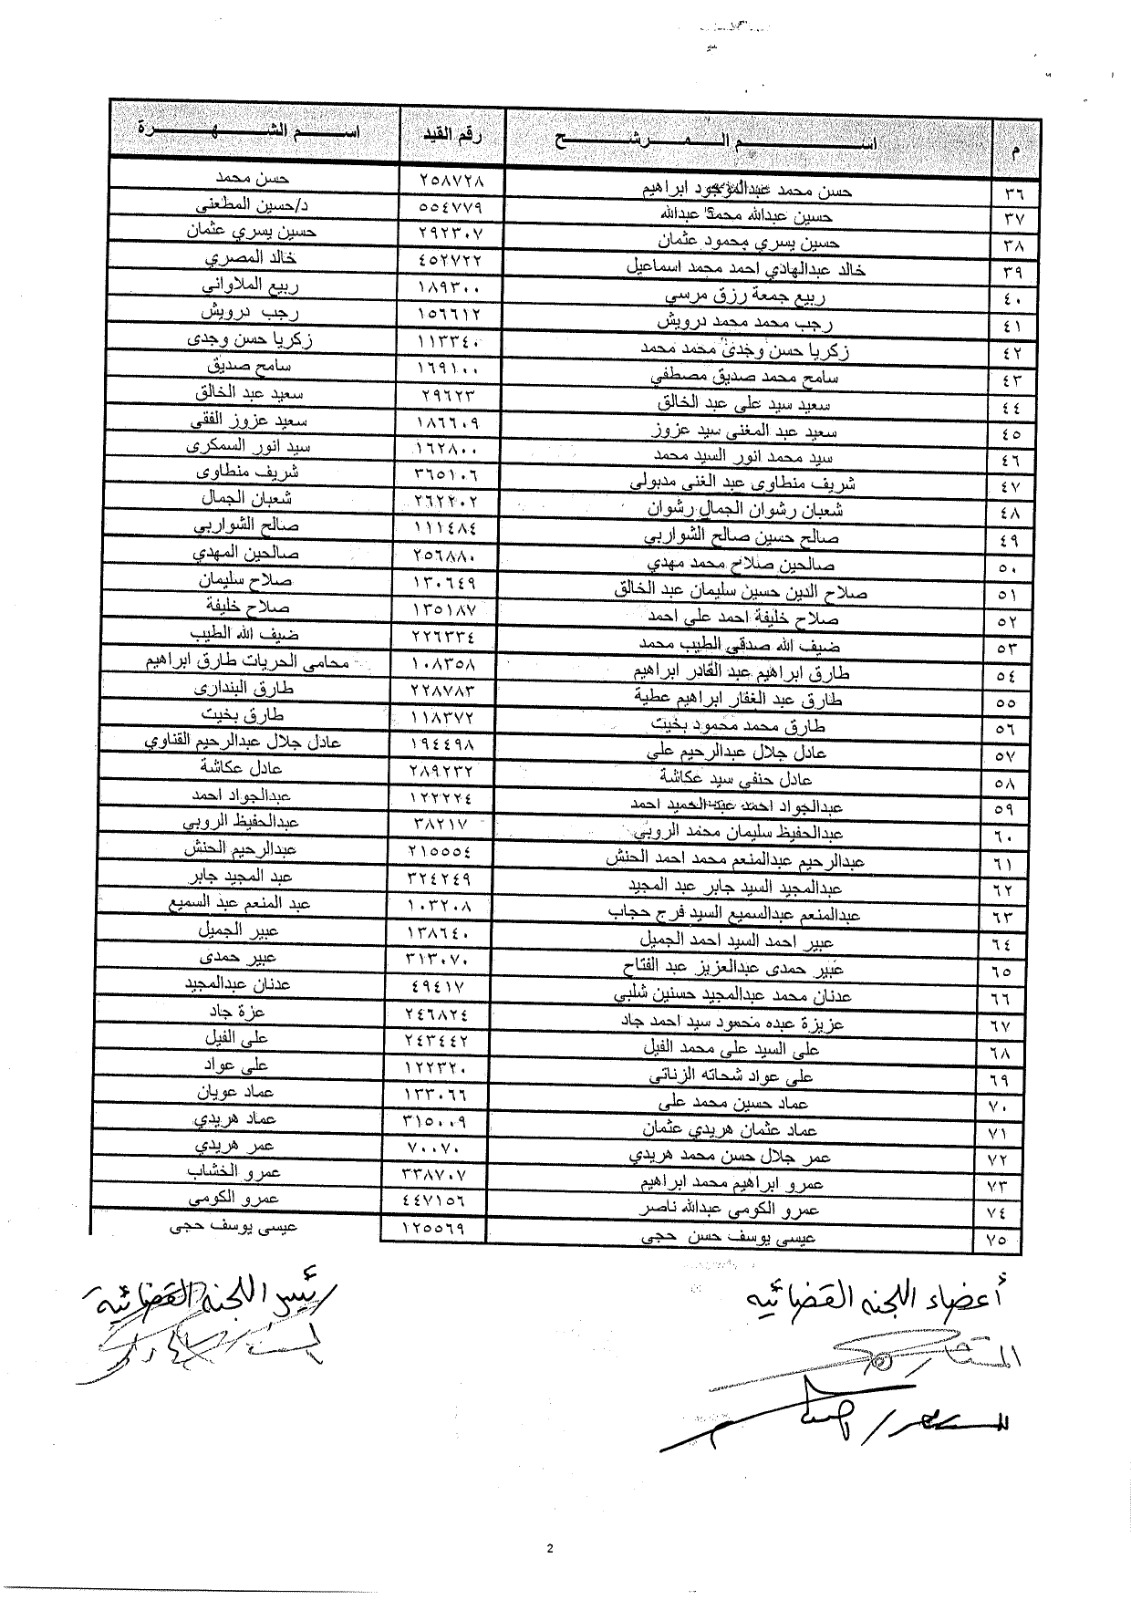 م اسم المرشح رقم القيد اسم الشهرة
٣٦ حسن محمد عبدالموجود ابراهيم ٢٥٨٧٢٨ حسن محمد
٣٧ حسين عبدالله محمد عبدالله ٥٥٤٧٧٩ د/حسين المطعنى
٣٨ حسين يسري محمود عثمان ٢٩٢٣٠٧ حسين يسري عثمان
٣٩ خالد عبدالهادي احمد محمد اسماعيل ٤٥٢٧٢٢ خالد المصري
٤٠ ربيع جمعة رزق مرسي ١٨٩٣٠٠ ربيع الملاواني
٤١ رجب محمد محمد درويش ١٥٦٦١٢ رجب درويش
٤٢ زكريا حسن وجدى محمد محمد ١١٣٣٤٠ زكريا حسن وجدى
٤٣ سامح محمد صديق مصطفي ١٦٩١٠٠ سامح صديق
٤٤ سعيد سيد على عبد الخالق ٢٩٦٢٣ سعيد عبد الخالق
٤٥ سعيد عبد المغنى سيد عزوز ١٨٦٦٠٩ سعيد عزوز الفقى
٤٦ سيد محمد انور السيد محمد ١٦٢٨٠٠ سيد انور السمكرى
٤٧ شريف منطاوى عبد الغنى مدبولى ٣٦٥١٠٦ شريف منطاوى
٤٨ شعبان رشوان الجمال رشوان ٢٦٢٢٠٢ شعبان الجمال
٤٩ صالح حسين صالح الشواربي ١١١٤٨٤ صالح الشواربي
٥٠ صالحين صلاح محمد مهدي ٢٥٦٨٨٠ صالحين المهدي
٥١ صلاح الدين حسين سليمان عبد الخالق ١٣٠٦٤٩ صلاح سليمان
٥٢ صلاح خليفة احمد على احمد ١٣٥١٨٧ صلاح خليفة
٥٣ ضيف الله صدقي الطيب محمد ٢٢٦٣٣٤ ضيف الله الطيب
٥٤ طارق ابراهيم عبد القادر ابراهيم ١٠٨٣٥٨ محامى الحريات طارق ابراهيم
٥٥ طارق عبد الغفار ابراهيم عطية ٢٢٨٧٨٣ طارق البندارى
٥٦ طارق محمد محمود بخيت ١١٨٣٧٢ طارق بخيت
٥٧ عادل جلال عبدالرحيم علي ١٩٤٤٩٨ عادل جلال عبدالرحيم القناوي
٥٨ عادل حنفي سيد عكاشة ٢٨٩٢٣٢ عادل عكاشة
٥٩ عبدالجواد احمد عبد الحميد احمد ١٢٢٢٢٤ عبدالجواد احمد
٦٠ عبدالحفيظ سليمان محمد الروبي ٣٨٢١٧ عبدالحفيظ الروبي
٦١ عبدالرحيم عبدالمنعم محمد احمد الحنش ٢١٥٥٥٤ عبدالرحيم الحنش
٦٢ عبدالمجيد السيد جابر عبد المجيد ٣٢٤٢٤٩ عبد المجيد جابر
٦٣ عبدالمنعم عبدالسميع السيد فرج حجاب ١٠٣٢٠٨ عبد المنعم عبد السميع
٦٤ عبير احمد السيد احمد الجميل ١٣٨٦٤٠ عبير الجميل
٦٥ عبير حمدى عبدالعزيز عبد الفتاح ٣١٣٠٧٠ عبير حمدى
٦٦ عدنان محمد عبدالمجيد حسنين شلبي ٤٩٤١٧ عدنان عبدالمجيد
٦٧ عزيزة عبده محمود سيد احمد جاد ٢٤٦٨٢٤ عزة جاد
٦٨ على السيد على محمد الفيل ٢٤٣٤٤٢ على الفيل
٦٩ على عواد شحاته الزناتى ١٢٢٣٢٠ على عواد
٧٠ عماد حسين محمد على ١٣٣٠٦٦ عماد عويان
٧١ عماد عثمان هريدي عثمان ٣١٥٠٠٩ عماد هريدي
٧٢ عمر جلال حسن محمد هريدي ٧٠٠٧٠ عمر هريدي
٧٣ عمرو ابراهيم محمد ابراهيم ٣٣٨٧٠٧ عمرو الخشاب
٧٤ عمرو الكومى عبدالله ناصر ٤٤٧١٥٦ عمرو الكومى
٧٥ عيسى يوسف حسن حجى ١٢٥٥٦٩ عيسى يوسف حجى
أعضاء اللجنه القضائيه رئيس اللجنه القضائية
2